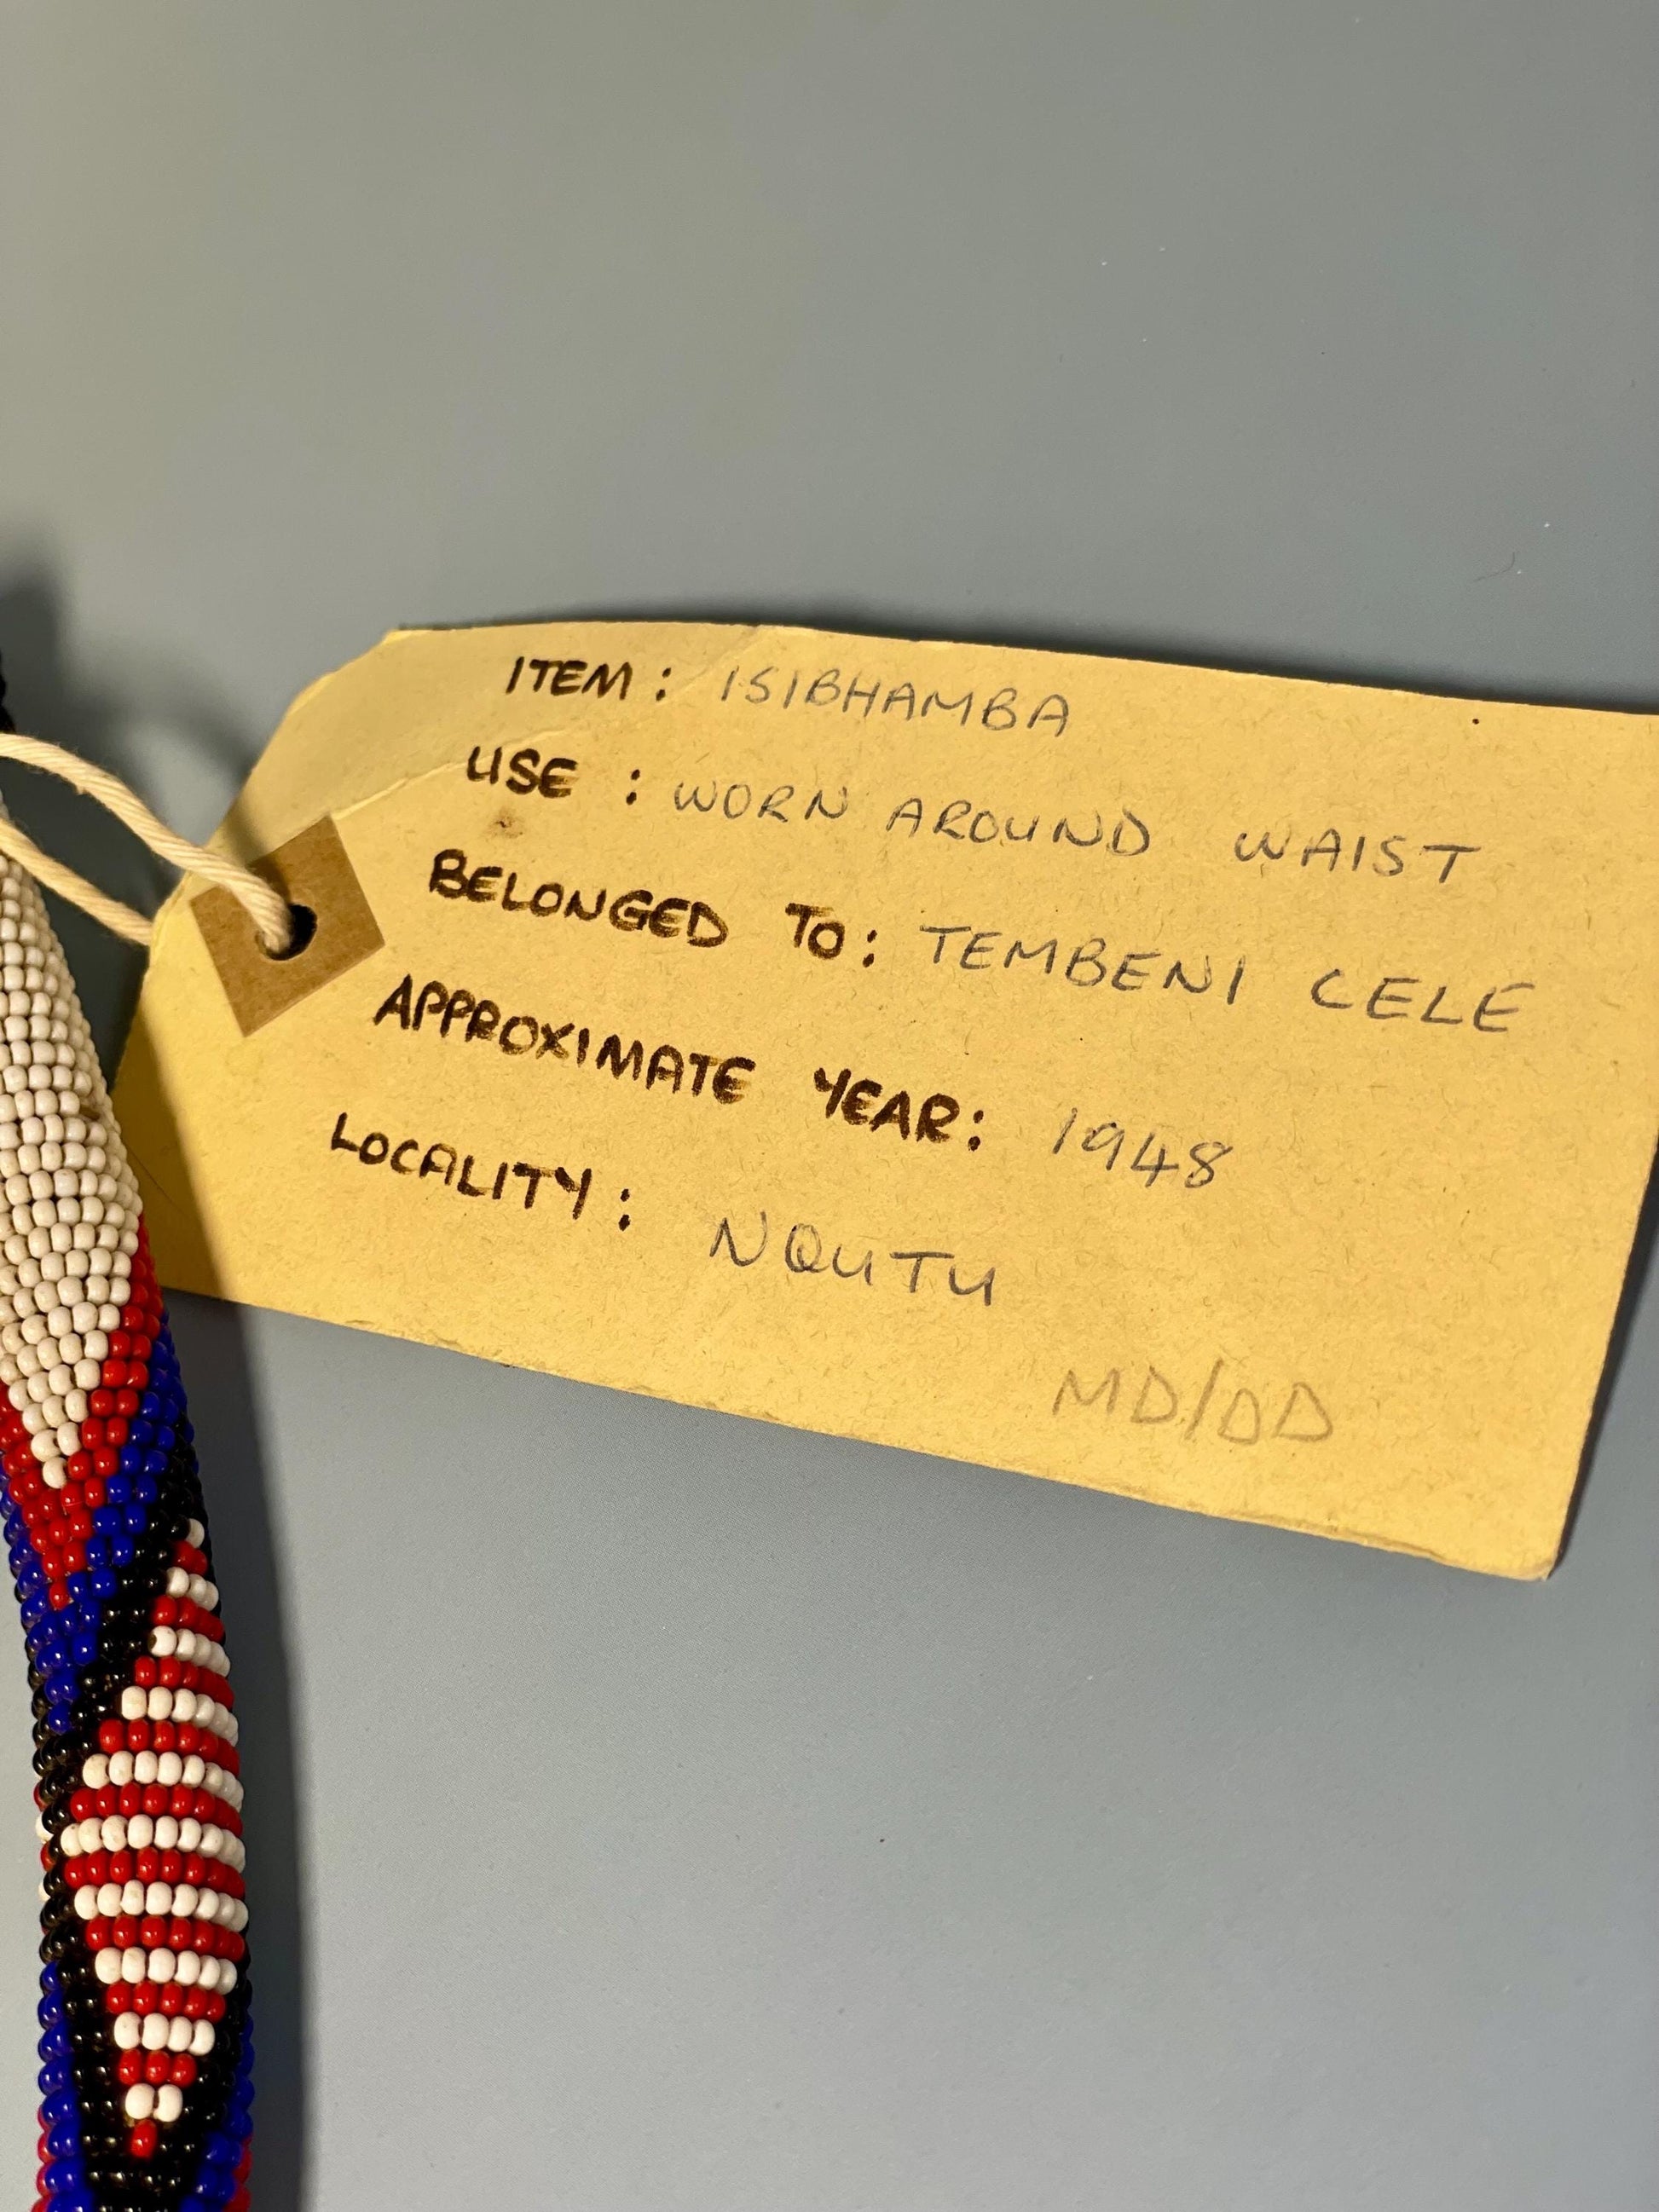 ITEM: ISIBHAMBA
USE: WORN AROUND WAIST
BELONGED TO: TEMBENI CELE
APPROXIMATE YEAR: 1948
LOCALITY: NQUTU
MD/DD